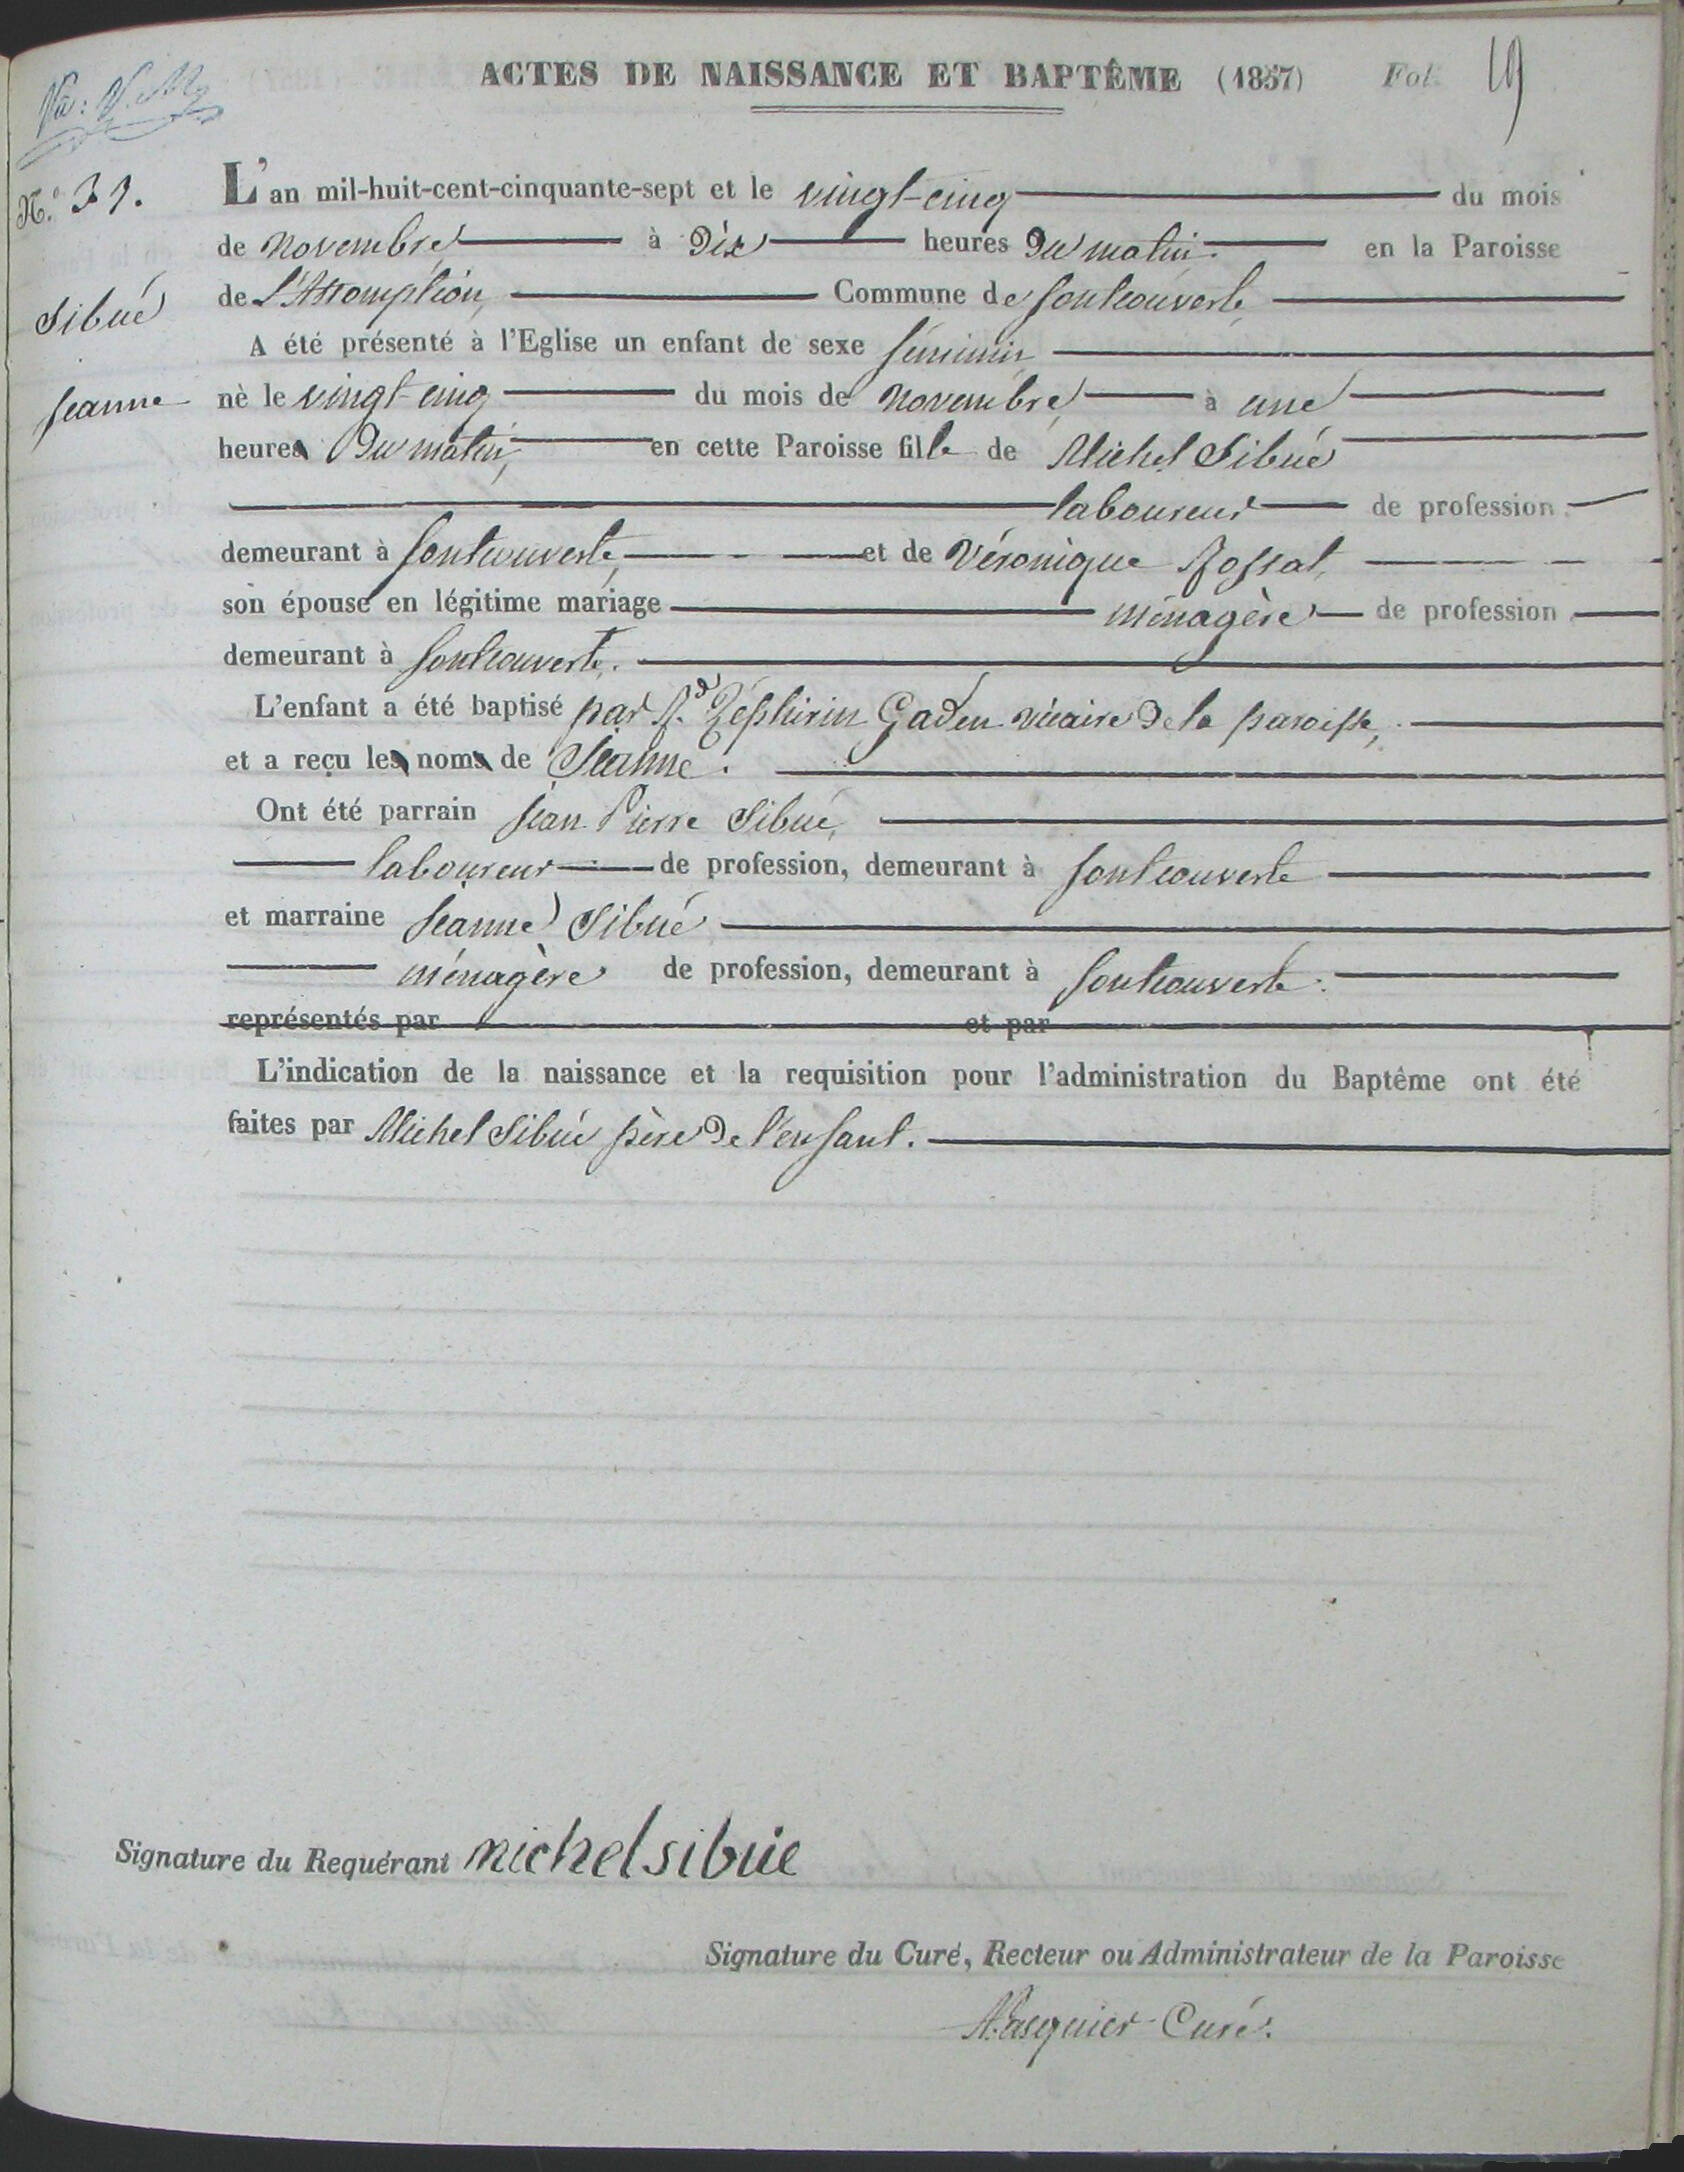 ACTES DE NAISSANCE ET BAPTÊME (1857) Fol. 19
N.º 31.
Sibué
Jeanne
L'an mil-huit-cent-cinquante-sept et le vingt-cinq du mois
de novembre à Dix heures Du matin. en la Paroisse
de L'Assomption, Commune de fontcouverte,
A été présenté à l'Eglise un enfant de sexe féminin
nè le vingt-cinq du mois de novembre, à une
heure Du matin, en cette Paroisse fille de Michel Sibué
laboureur de profession
demeurant à fontcouverte, et de Véronique Rossat,
son épouse en légitime mariage ménagère de profession
demeurant à fontcouverte.
L'enfant a été baptisé par R.d Zéphirin Gaden vicaire De la paroisse,
et a reçu le nom de Jeanne.
Ont été parrain Jean Pierre Sibué,
laboureur de profession, demeurant à fontcouverte
et marraine Jeanne Sibué
ménagère de profession, demeurant à fontcouverte.
représentés par et par
L'indication de la naissance et la requisition pour l'administration du Baptême ont été
faites par Michel Sibué père De l'enfant.
Signature du Requérant michel sibue
Signature du Curé, Recteur ou Administrateur de la Paroisse
Curé.